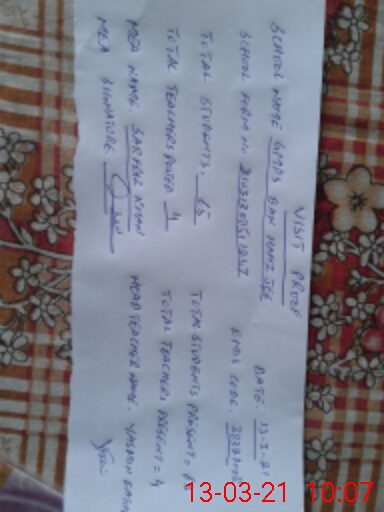 VISIT PROOF
SCHOOL NAME GMPS BAN HAFIZ JEE DATE. 13-3-21
SCHOOL FORM NO EMIS CODE.
TOTAL STUDENTS. 65 TOTAL STUDENTS PRESENT =
TOTAL TEACHERS POSTED 4 TOTAL TEACHERS PRESENT = 4
MEA NAME SARFRAZ KHAN HEAD TEACHER NAME. YASMIN
MEA SIGNATURE
13-03-21 10:07